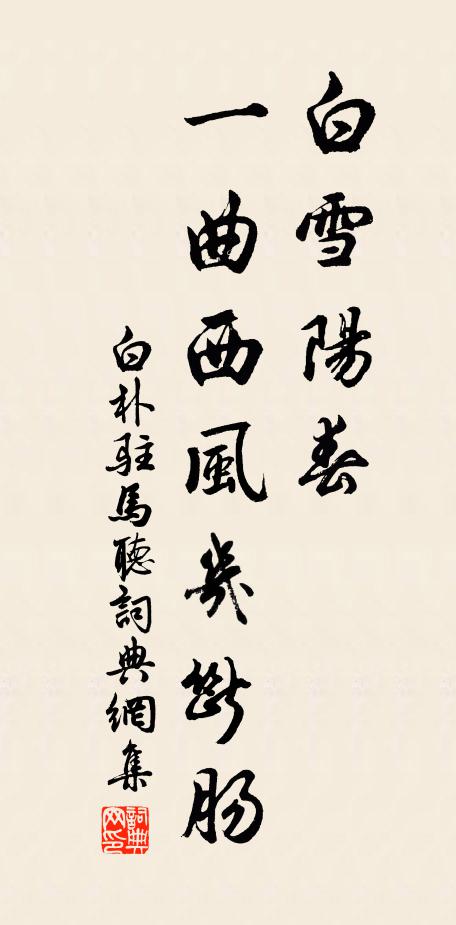 白雪陽春
一曲西風幾斷腸
白朴駐馬聽詞典網集
詞典网印